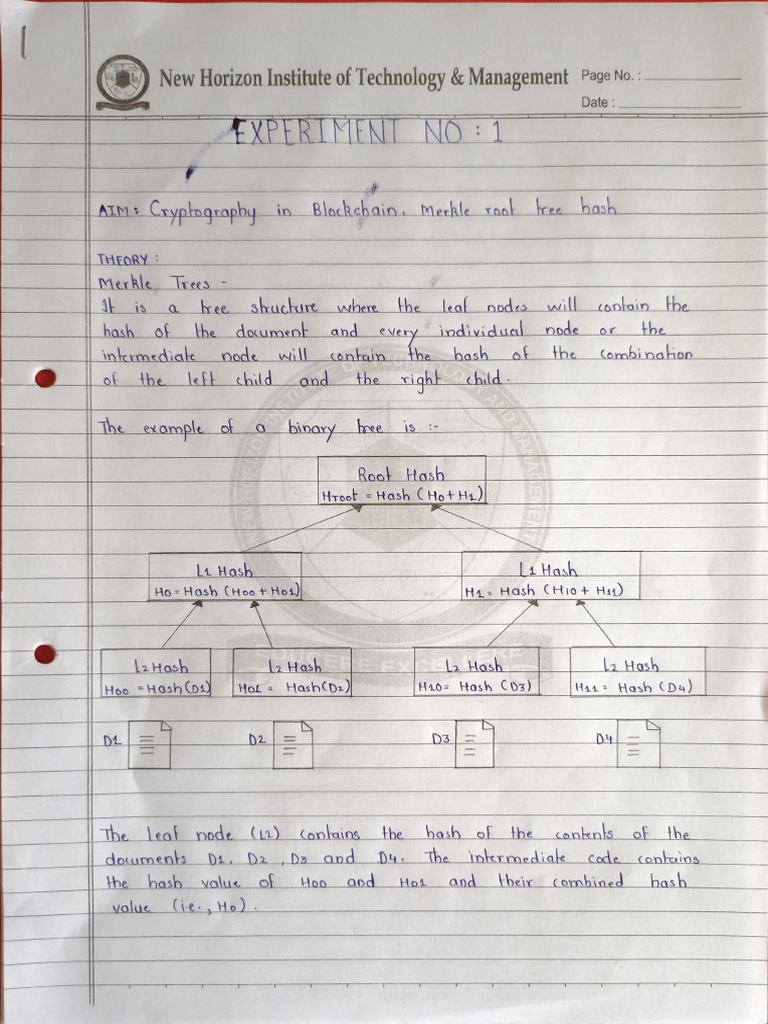 New Horizon Institute of Technology & Management
Page No. :
Date :
EXPERIMENT NO : 1
AIM: Cryptography in Blockchain, Merkle root tree hash
THEORY :
Merkle Trees -
It is a tree structure where the leaf nodes will contain the
hash of the document and every individual node or the
intermediate node will contain the hash of the combination
of the left child and the right child.
The example of a binary tree is :-
Root Hash
Hroot = Hash (H0 + H1)
L1 Hash
H0 = Hash (H00 + H01)
L1 Hash
H1 = Hash (H10 + H11)
L2 Hash
H00 = Hash (D1)
L2 Hash
H01 = Hash (D2)
L2 Hash
H10 = Hash (D3)
L2 Hash
H11 = Hash (D4)
D1
D2
D3
D4
The leaf node (L2) contains the hash of the contents of the
documents D1, D2, D3 and D4. The intermediate code contains
the hash value of H00 and H01 and their combined hash
value (i.e., H0).
NEW HORIZON INSTITUTE OF TECHNOLOGY AND MANAGEMENT
EDUCERE EXCELLERE